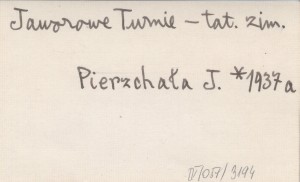 Jaworowe Turnie – tat. zim.
Pierzchała J. *1937a
/3194